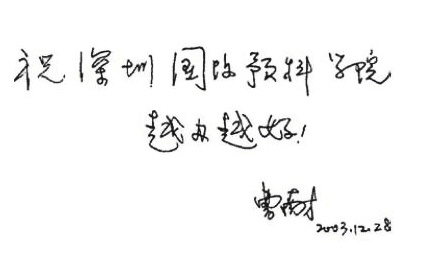 祝深圳国际预科学院
越办越好!
曹南才
2003.12.28